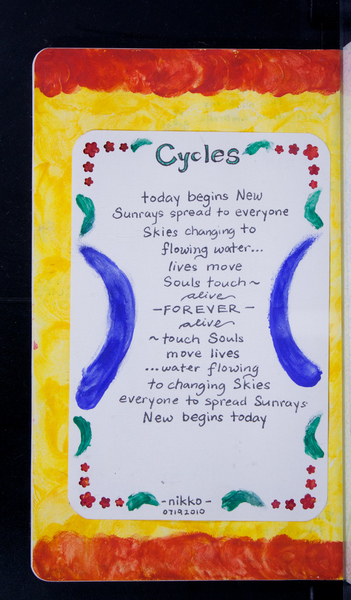 Cycles
today begins New
Sunrays spread to everyone
Skies changing to
flowing water...
lives move
Souls touch~
alive
-FOREVER-
alive
~touch Souls
move lives
...water flowing
to changing Skies
everyone to spread Sunrays
New begins today
-nikko-
07192010